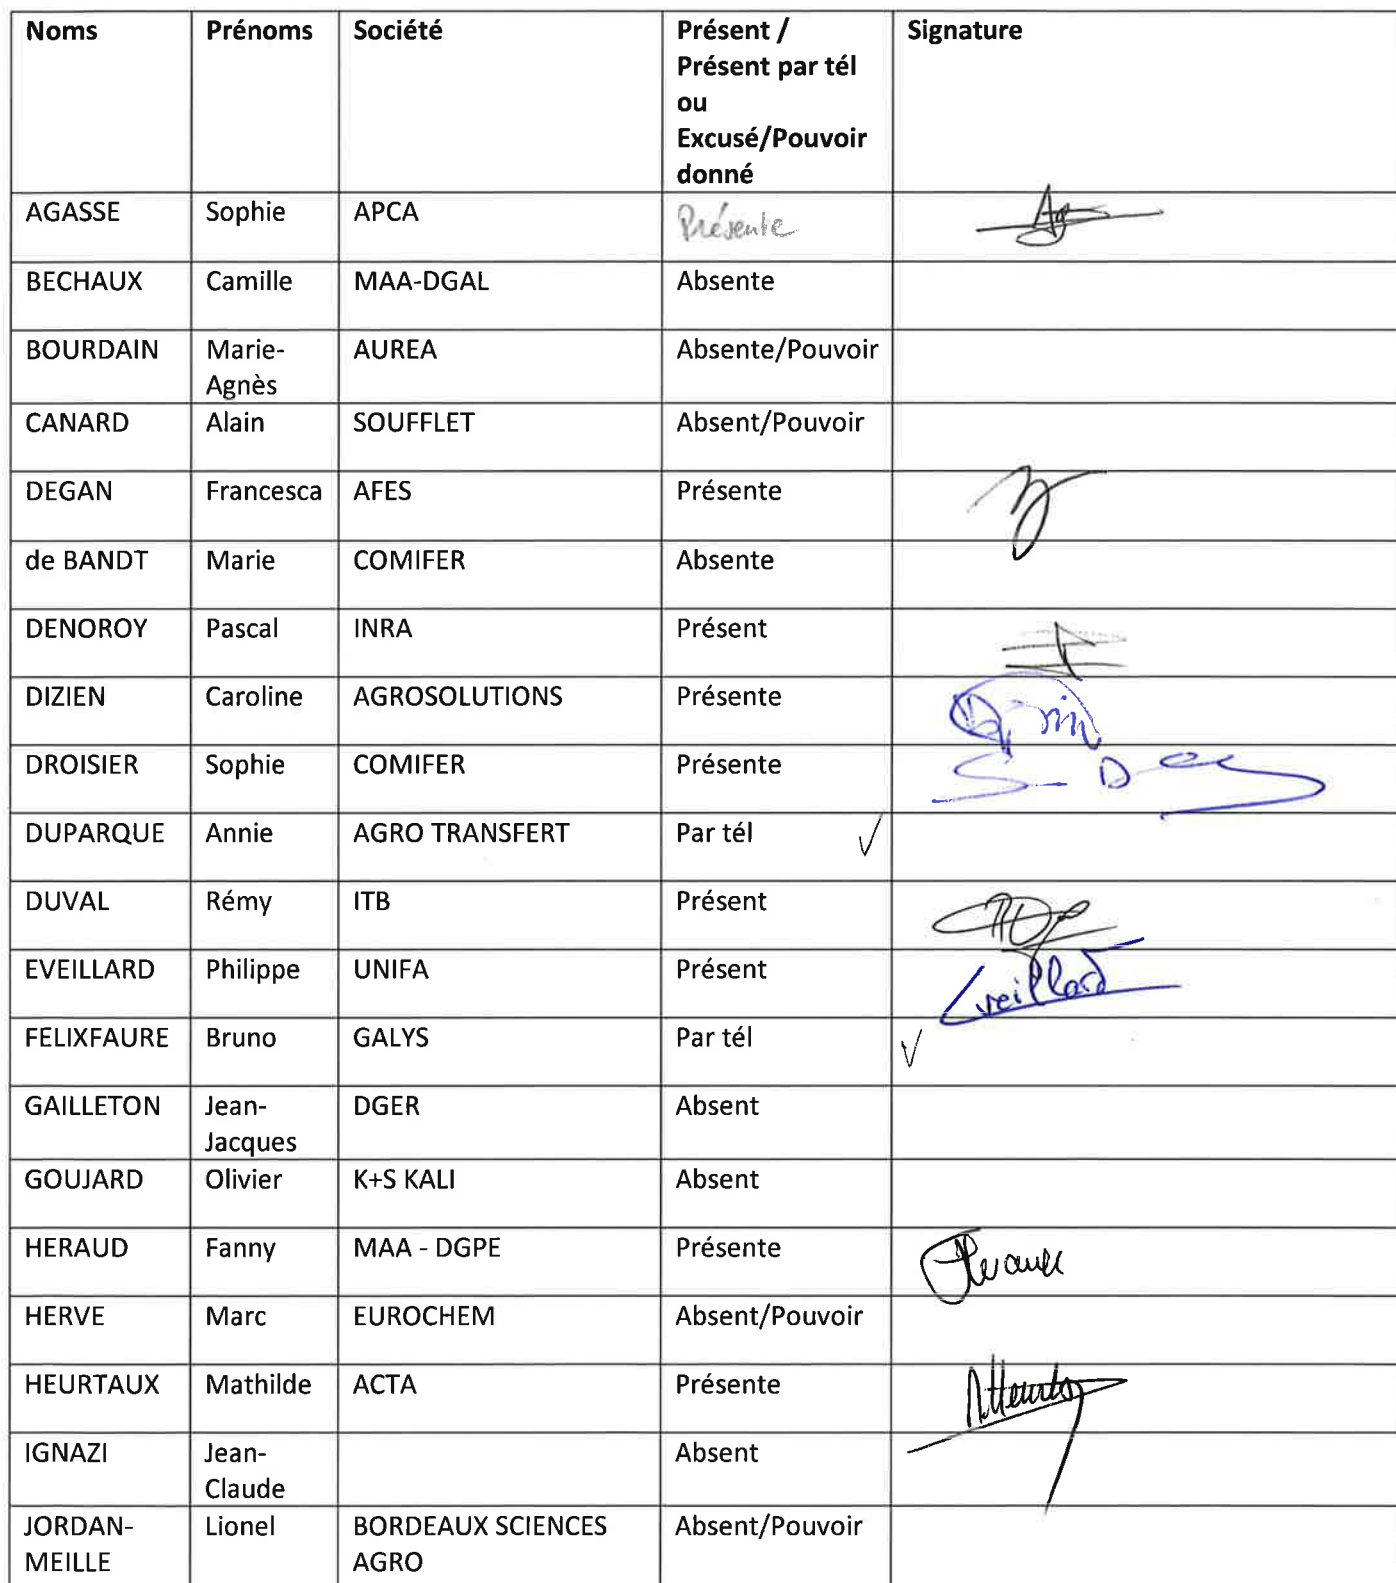 Noms Prénoms Société Présent / Signature
Présent par tél
ou
Excusé/Pouvoir
donné
AGASSE Sophie APCA Présente
BECHAUX Camille MAA-DGAL Absente
BOURDAIN Marie- AUREA Absente/Pouvoir
Agnès
CANARD Alain SOUFFLET Absent/Pouvoir
DEGAN Francesca AFES Présente
de BANDT Marie COMIFER Absente
DENOROY Pascal INRA Présent
DIZIEN Caroline AGROSOLUTIONS Présente
DROISIER Sophie COMIFER Présente
DUPARQUE Annie AGRO TRANSFERT Par tél √
DUVAL Rémy ITB Présent
EVEILLARD Philippe UNIFA Présent Eveillard
FELIXFAURE Bruno GALYS Par tél √
GAILLETON Jean- DGER Absent
Jacques
GOUJARD Olivier K+S KALI Absent
HERAUD Fanny MAA - DGPE Présente
HERVE Marc EUROCHEM Absent/Pouvoir
HEURTAUX Mathilde ACTA Présente
IGNAZI Jean- Absent
Claude
JORDAN- Lionel BORDEAUX SCIENCES Absent/Pouvoir
MEILLE AGRO